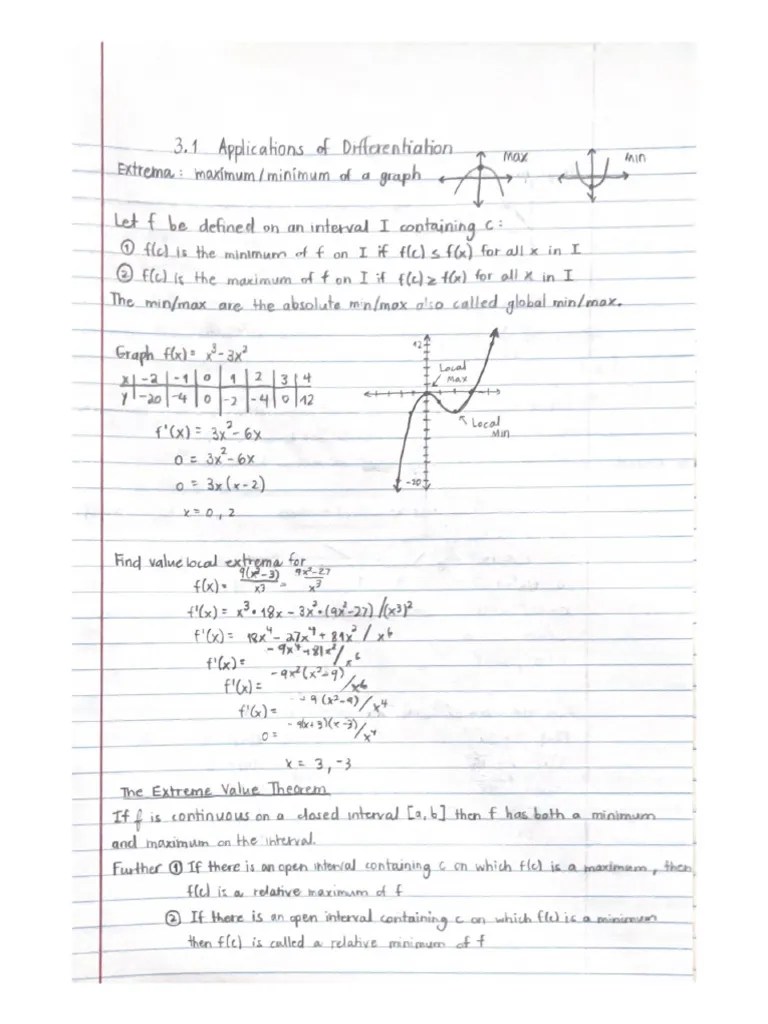 3.1 Applications of Differentiation
Extrema: maximum/minimum of a graph
max
min
Let f be defined on an interval I containing c:
① f(c) is the minimum of f on I if f(c) ≤ f(x) for all x in I
② f(c) is the maximum of f on I if f(c) ≥ f(x) for all x in I
The min/max are the absolute min/max also called global min/max.
Graph f(x) = x³-3x²
x | -2 | -1 | 0 | 1 | 2 | 3 | 4
y | -20 | -4 | 0 | -2 | -4 | 0 | 12
12
Local
Max
Local
Min
-20
f'(x) = 3x²-6x
0 = 3x²-6x
0 = 3x(x-2)
x = 0, 2
Find value local extrema for
f(x) = 9(x²-3)/x3 = 9x²-27/x³
f'(x) = x³•18x - 3x²•(9x²-27)/(x³)²
f'(x) = 18x⁴-27x⁴+81x²/x⁶
f'(x) = -9x⁴+81x²/x⁶
f'(x) = -9x²(x²-9)/x⁶
f'(x) = -9(x²-9)/x⁴
0 = -9(x+3)(x-3)/x⁴
x = 3, -3
The Extreme Value Theorem
If f is continuous on a closed interval [a,b] then f has both a minimum
and maximum on the interval.
Further ① If there is an open interval containing c on which f(c) is a maximum, then
f(c) is a relative maximum of f
② If there is an open interval containing c on which f(c) is a minimum
then f(c) is called a relative minimum of f